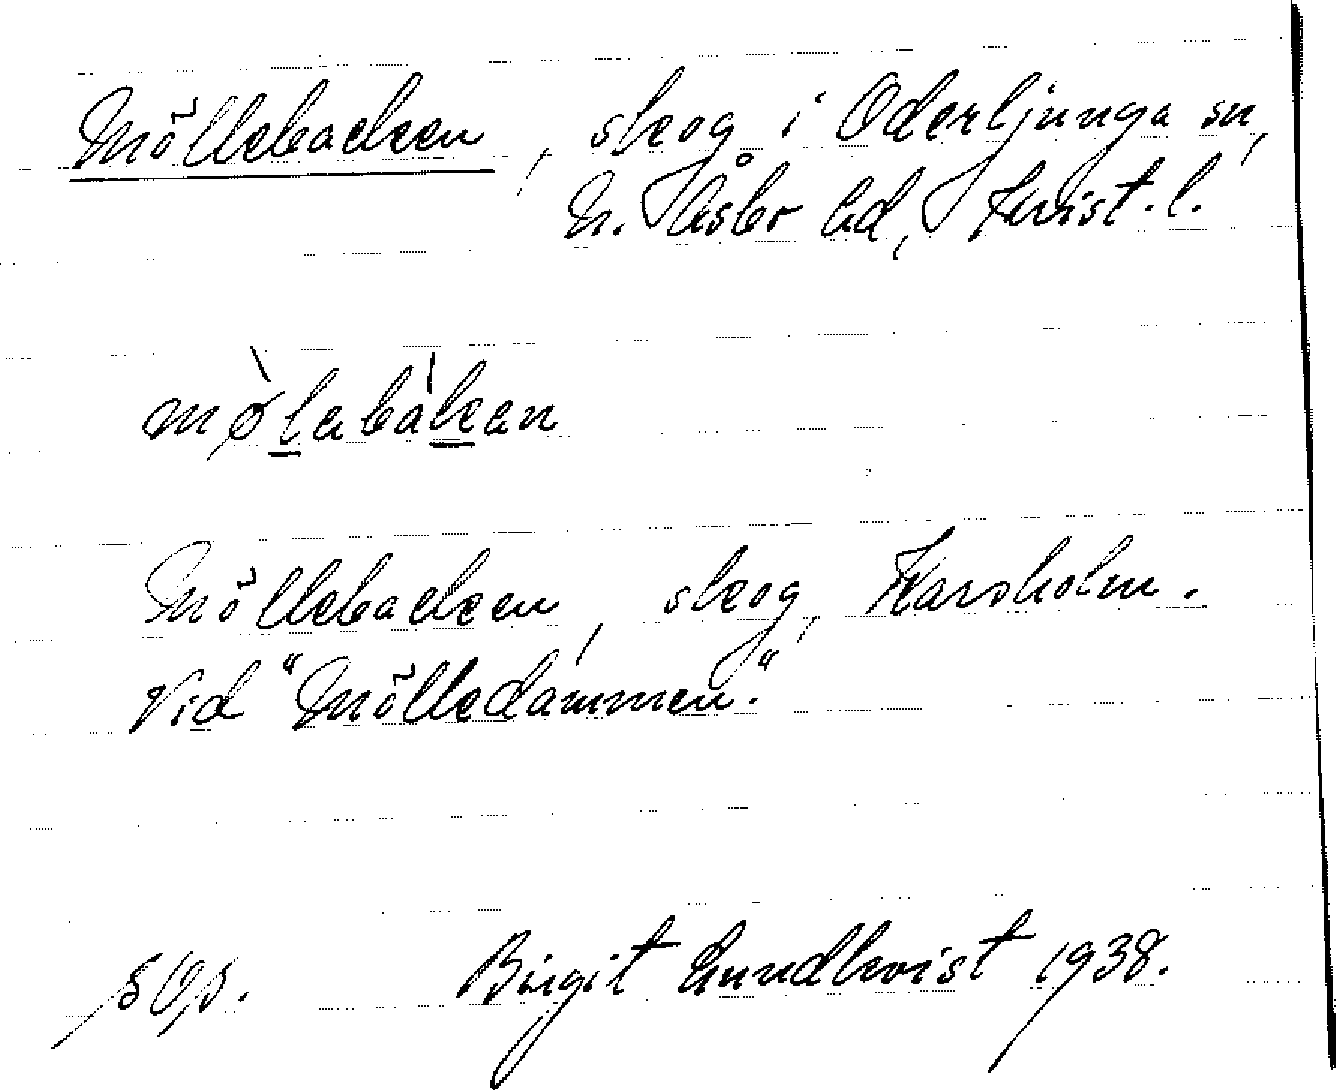 Möllebacken, skog i Oderljunga sn,
N. Åsbo hd, Krist. l.
mø̀lebàkan
Möllebacken, skog, Karsholm.
Vid "Mölledammen."
Birgit Lundkvist 1938.